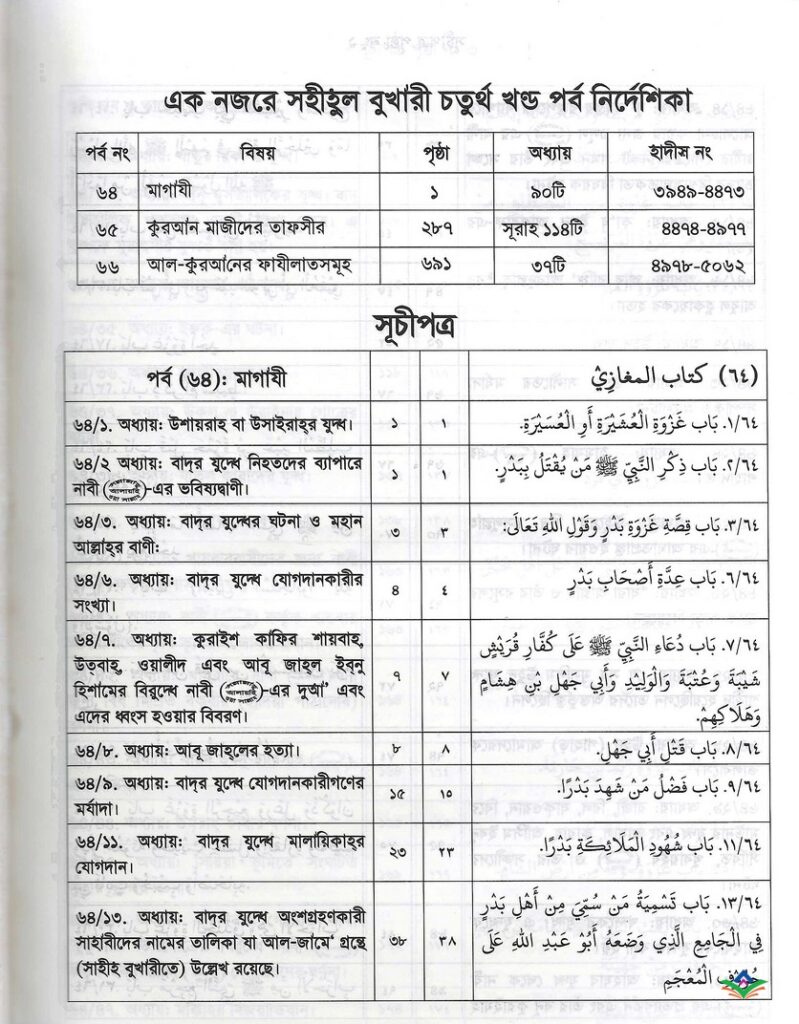 এক নজরে সহীহুল বুখারী চতুর্থ খণ্ড পর্ব নির্দেশিকা
পর্ব নং বিষয় পৃষ্ঠা অধ্যায় হাদীস নং
৬৪ মাগাযী ১ ৯০টি ৩৯৪৯-৪৪৭৩
৬৫ কুরআন মাজীদের তাফসীর ২৮৭ সূরাহ ১১৪টি ৪৪৭৪-৪৯৭৭
৬৬ আল-কুরআনের ফাযীলাতসমূহ ৬৯১ ৩৭টি ৪৯৭৮-৫০৬২
সূচীপত্র
পর্ব (৬৪): মাগাযী (٦٤) كتاب المغازي
৬৪/১. অধ্যায়: উশায়রাহ বা উসাইরাহ্‌র যুদ্ধ। ১ ١ ١/٦٤. بَاب غَزْوَةِ الْعُشَيْرَةِ أَوِ الْعُسَيْرَةِ.
৬৪/২ অধ্যায়: বাদ্‌র যুদ্ধে নিহতদের ব্যাপারে ১ ١ ٢/٦٤. بَاب ذِكْرِ النَّبِيِّ ﷺ مَنْ يُقْتَلُ بِبَدْرٍ.
নাবী (সাল্লাল্লাহু আলাইহি ওয়া সাল্লাম)-এর ভবিষ্যদ্বাণী।
৬৪/৩. অধ্যায়: বাদ্‌র যুদ্ধের ঘটনা ও মহান ৩ ٣ ٣/٦٤. بَاب قِصَّةِ غَزْوَةِ بَدْرٍ وَقَوْلِ اللهِ تَعَالَى:
আল্লাহ্‌র বাণী:
৬৪/৬. অধ্যায়: বাদ্‌র যুদ্ধে যোগদানকারীর ৪ ٤ ٦/٦٤. بَاب عِدَّةِ أَصْحَابِ بَدْرٍ
সংখ্যা।
৬৪/৭. অধ্যায়: কুরাইশ কাফির শায়বাহ, ٧/٦٤. بَاب دُعَاءِ النَّبِيِّ ﷺ عَلَى كُفَّارِ قُرَيْشٍ
উত্‌বাহ, ওয়ালীদ এবং আবূ জাহ্‌ল ইব্‌নু ৭ ٧ شَيْبَةَ وَعُتْبَةَ وَالْوَلِيْدِ وَأَبِي جَهْلِ بْنِ هِشَامٍ
হিশামের বিরুদ্ধে নাবী (সাল্লাল্লাহু আলাইহি ওয়া সাল্লাম)-এর দু‘আ এবং وَهَلَاكِهِمْ.
এদের ধ্বংস হওয়ার বিবরণ।
৬৪/৮. অধ্যায়: আবূ জাহ্‌লের হত্যা। ৮ ٨ ٨/٦٤. بَاب قَتْلِ أَبِي جَهْلٍ.
৬৪/৯. অধ্যায়: বাদ্‌র যুদ্ধে যোগদানকারীগণের ১৫ ١٥ ٩/٦٤. بَاب فَضْلُ مَنْ شَهِدَ بَدْرًا.
মর্যাদা।
৬৪/১১. অধ্যায়: বাদ্‌র যুদ্ধে মালায়িকাহ্‌র ২৩ ٢٣ ١١/٦٤. بَاب شُهُودِ الْمَلَائِكَةِ بَدْرًا.
যোগদান।
৬৪/১৩. অধ্যায়: বাদ্‌র যুদ্ধে অংশগ্রহণকারী ١٣/٦٤. بَاب تَسْمِيَةُ مَنْ سُمِّيَ مِنْ أَهْلِ بَدْرٍ
সাহাবীদের নামের তালিকা যা আল-জামে‘ গ্রন্থে ৩৮ ٣٨ فِي الْجَامِعِ الَّذِي وَضَعَهُ أَبُوْ عَبْدِ اللهِ عَلَى
(সাহীহ বুখারীতে) উল্লেখ রয়েছে। حُرُوْفِ الْمُعْجَمِ